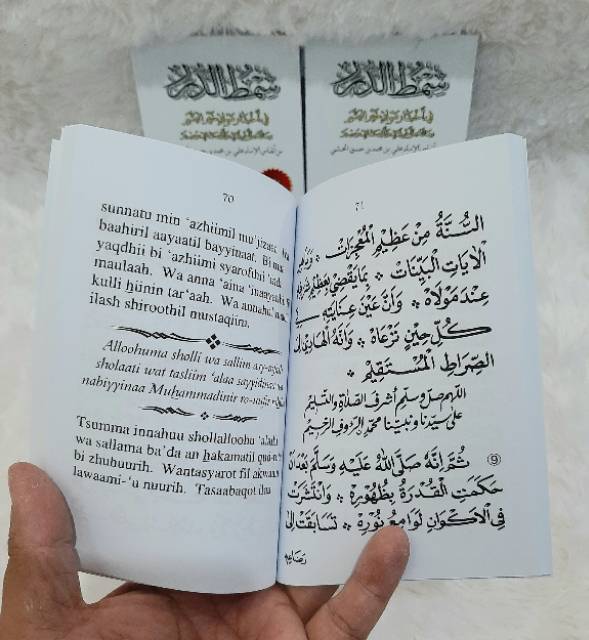 سمط الدرر
سمط الدرر
70
sunnatu min ‘azhiimil mu’jizaat.
baahiril aayaatil bayyinaat. Bi
yaqdhii bi ‘azhiimi syarofihi ‘inda
maulaah. Wa anna ‘aina ‘inaayatihi
kulli hiinin tar’aah. Wa annahul
ilash shiroothil mustaqiim.
Alloohuma sholli wa sallim
sholaati wat tasliim ‘alaa sayyidinaa
nabiyyinaa Muhammadinir
Tsumma innahuu shollalloohu ‘alaihi
wa sallama ba’da an hakamatil
bi zhuhuurih. Wantasyarot fil akwaani
lawaami-‘u nuurih. Tasaabaqot
٧١
السُّنَّةُ مِنْ عَظِيْمِ الْمُعْجِزَاتْ *
الْآيَاتِ الْبَيِّنَاتْ * بِمَا يَقْضِيْ بِعَظِيْمِ
عِنْدَ مَوْلَاهْ * وَأَنَّ عَيْنَ عِنَايَتِهِ فِي
كُلِّ حِيْنٍ تَرْعَاهْ * وَأَنَّهُ الْهَادِيْ إِلَى
الصِّرَاطِ الْمُسْتَقِيْمِ *
اللهم صل وسلم أشرف الصلاة والتسليم
على سيدنا ونبينا محمد الرؤوف الرحيم
⑨ ثُمَّ إِنَّهُ صَلَّى اللهُ عَلَيْهِ وَسَلَّمَ بَعْدَ أَنْ
حَكَمَتِ الْقُدْرَةُ بِظُهُوْرِهْ * وَانْتَشَرَتْ
فِي الْأَكْوَانِ لَوَامِعُ نُوْرِهْ * تَسَابَقَتْ إِلَى
رَضَاعِهِ